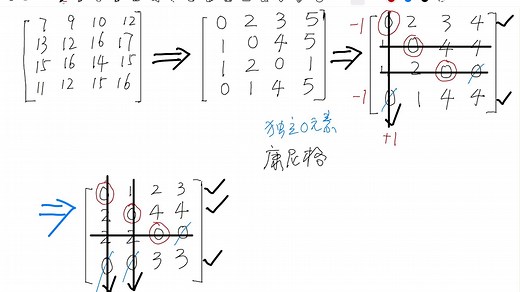 7 9 10 12
13 12 16 17
15 16 14 15
11 12 15 16
0 2 3 5
1 0 4 5
1 2 0 1
0 1 4 5
-1 0 2 3 4
0 4 4
2 0 0
-1 0 1 4 4
+1
独立0元素
康尼格
0 1 2 3
2 0 4 4
2 2 0 0
0 0 3 3